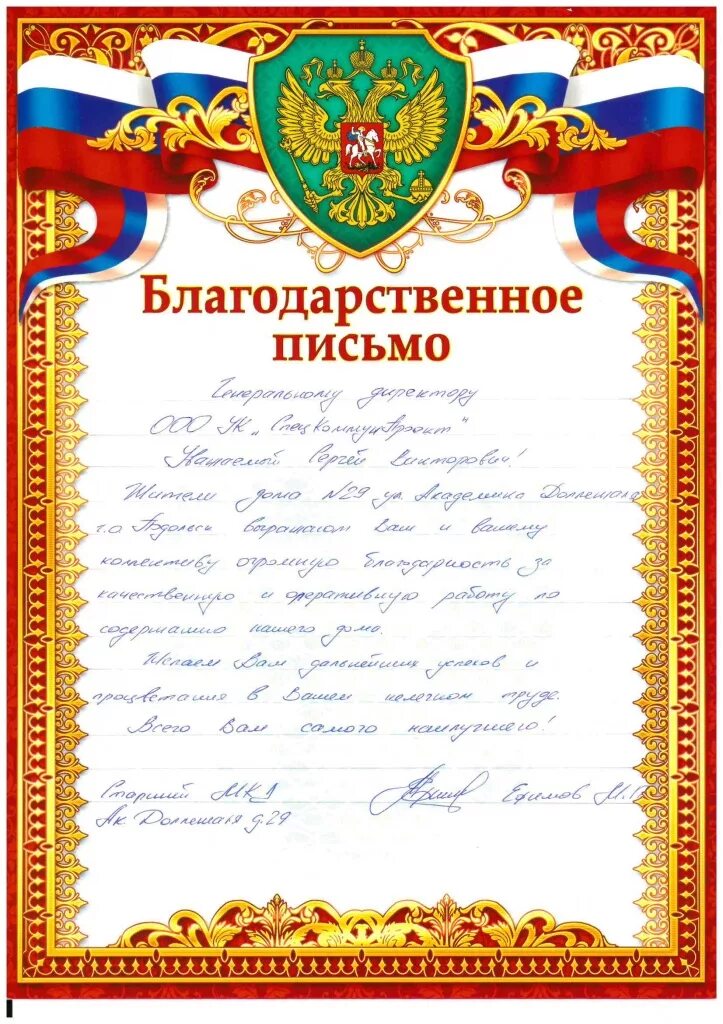 Благодарственное
письмо
Генеральному директору
ООО УК „СпецКоммунПроект"
Уважаемый Сергей Викторович!
Жители дома №29 ул. Академика Доллежаля
г.о Подольск выражают Вам и вашему
коллективу огромную благодарность за
качественную и оперативную работу по
содержанию нашего дома.
Желаем Вам дальнейших успехов и
процветания в Вашем нелегком труде.
Всего Вам самого наилучшего!
Старший МКД Ефимов
Ак Доллежаля д.29